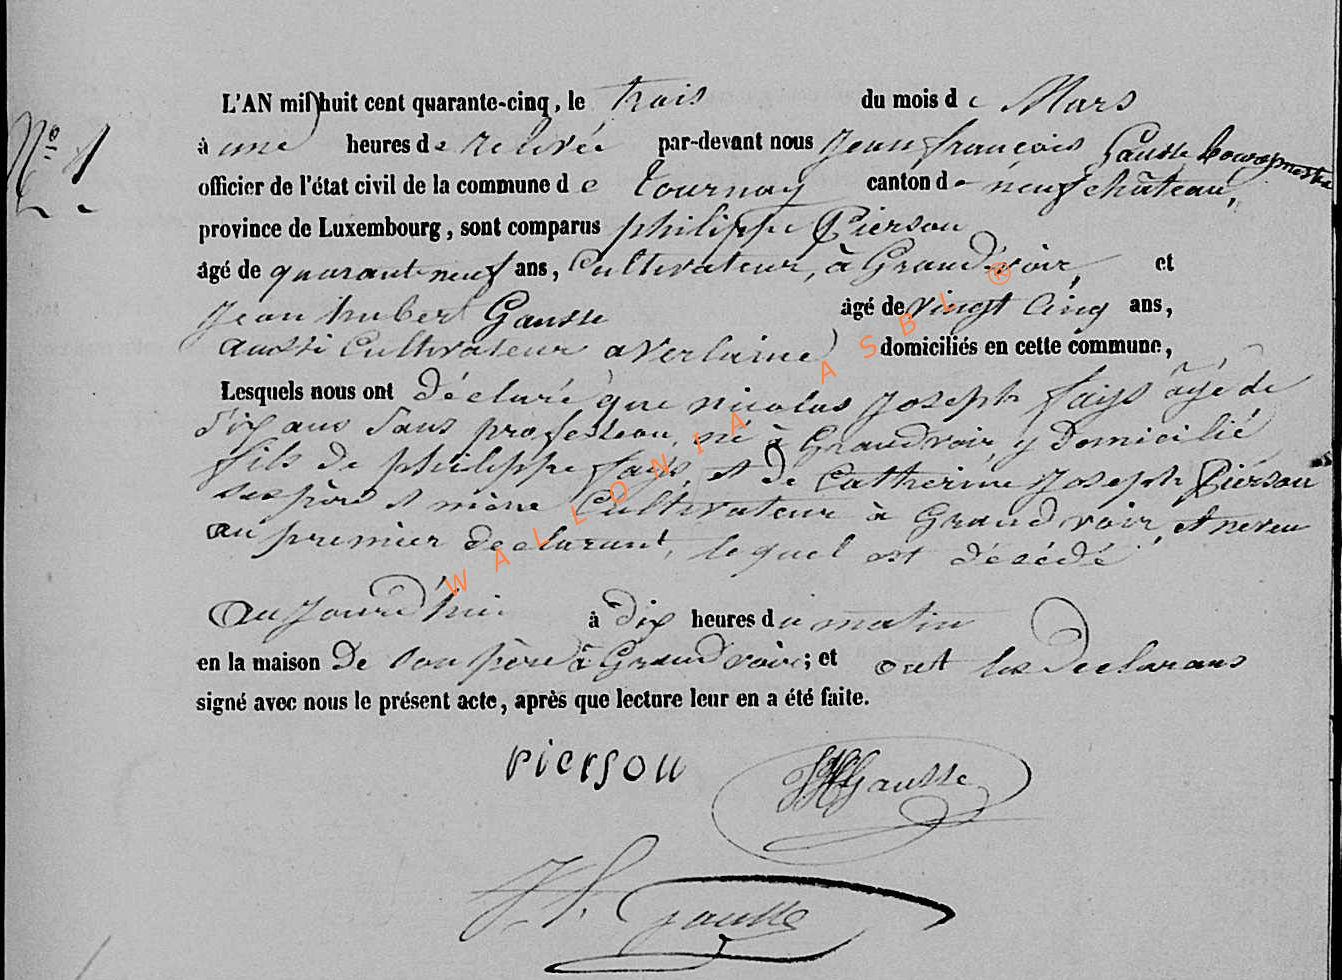 L'AN mil huit cent quarante-cinq, le trois du mois de Mars
N° 1
à une heures de relevée par-devant nous Jean françois Gausse bourgmestre
officier de l'état civil de la commune de tournay canton de neufchâteau,
province de Luxembourg, sont comparus philippe Pierson
âgé de quarant neuf ans, Cultivateur, à Grandvoir, et
Jean hubert Gausse âgé de vingt cinq ans,
aussi Cultivateur a Verlaine domiciliés en cette commune,
Lesquels nous ont déclaré que nicolas Joseph fays âgé de
dix ans Sans profession, né à Grandvoir, y Domicilié
fils de philippe fays, et de Catherine Joseph Pierson
ses père et mère Cultivateur à Grandvoir, et neveu
au premier declarant, lequel est décédé
aujourd'hui à dix heures du matin
en la maison De son père à Grandvoir; et ont les Declarans
signé avec nous le présent acte, après que lecture leur en a été faite.
pierson
JHGausse
J f. Gausse
WALLONIA ASBL®